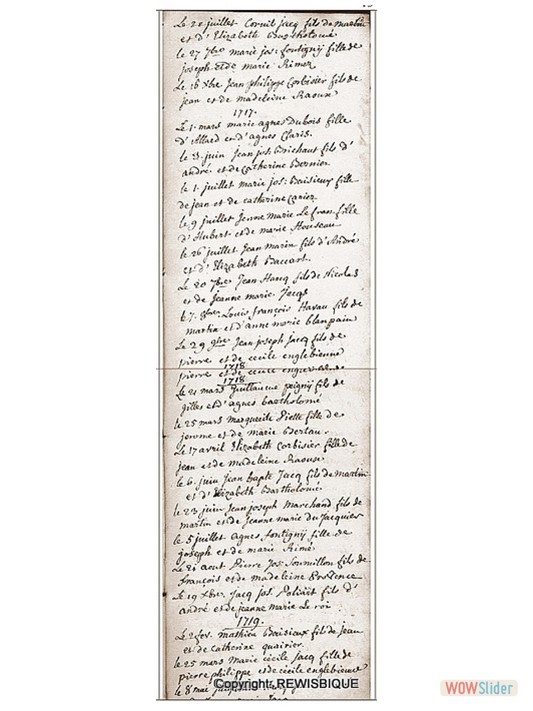 Le 22 juillet Cornil Jacq fils de martin
et d' Elizabeth Bartholomé
le 27 7bre marie jos: fontignÿ fille de
joseph et de marie Rimez
Le 16 Xbre Jean philippe Corbisier fils de
jean et de madeleine Raoux
1717.
Le 1. mars marie agnes Dubois fille
d'Allard et d'agnes Claris.
le 3 juin Jean jos: Brichaut fils d'
andré et de Catherine Bernier
le 1. juillet marie jos: Baisieux fille
de jean et de catherine
le 9 juillet Jenne Marie Le fran fille
d'Hubert et de marie Housseau
le 26 juillet Jean marin fils d'André
et d'Elizabeth Baccart.
Le 20 7bre Jean Hancq fils de Nicolas
et de Jeanne marie Jacqs
Louis françois Havau fils de
martin et d'anne marie blanpain
Le 29 9bre Jean joseph Jacq fils de
pierre et de cecile englebienne
1718
pierre et de cecile
1718
Le 21 mars Guillaume peigny fils de
gilles et d'agnes bartholomé
le 25 mars Marguerite Piette fille de
jerome et de marie Bertau.
Le 17 avril Elizabeth Corbisier fille de
jean et de madeleine Raoux
le 6. juin Jean bapte Jacq fils de martin
et d'Elizabeth Bartholomé.
le 23 juin Jean joseph Marchand fils de
martin et de Jeanne marie du Jacquier
le 5 juillet agnes fontignÿ fille de
joseph et de marie Rimé
Le 21 aout Pierre Jos: Soumillon fils de
françois et de madeleine Brostence
Le 19 Xbre. Jacq jos. Polviet fils d'
andré et de jeanne marie Le roi
1719.
Le 2 fev. mathieu Baisieux fils de jean
et de Catherine
le 25 mars Marie cecile Jacq fille de
pierre philippe et de cecile englebienne
le 8 mai
Copyright REWISBIQUE
WOWSlider